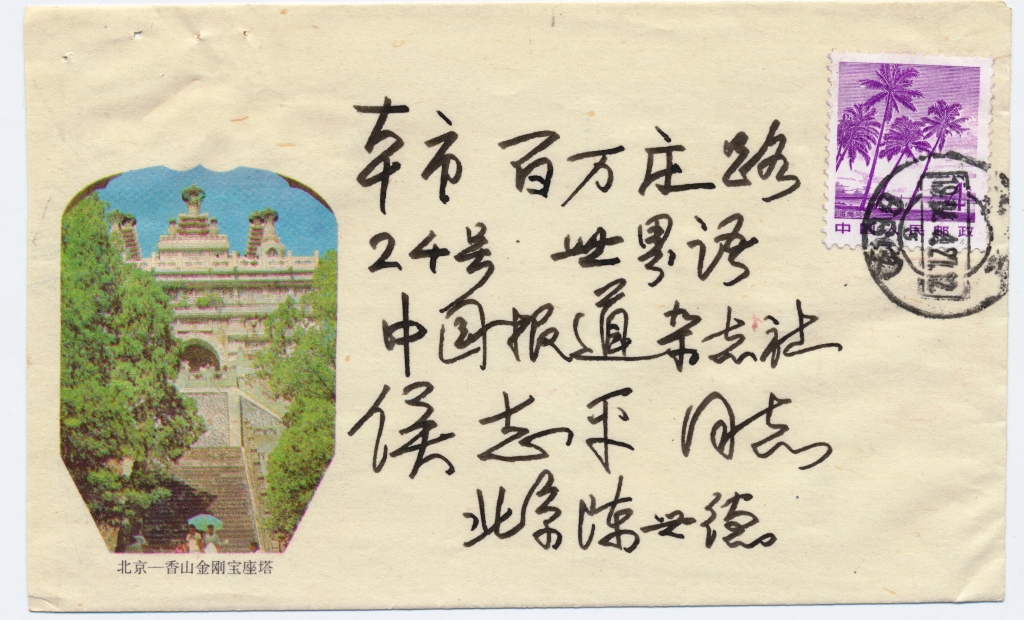 本市 百万庄路
24号 世界语
中国报道杂志社
侯志平 同志
北京陈世德
中国人民邮政
北京—香山金刚宝座塔